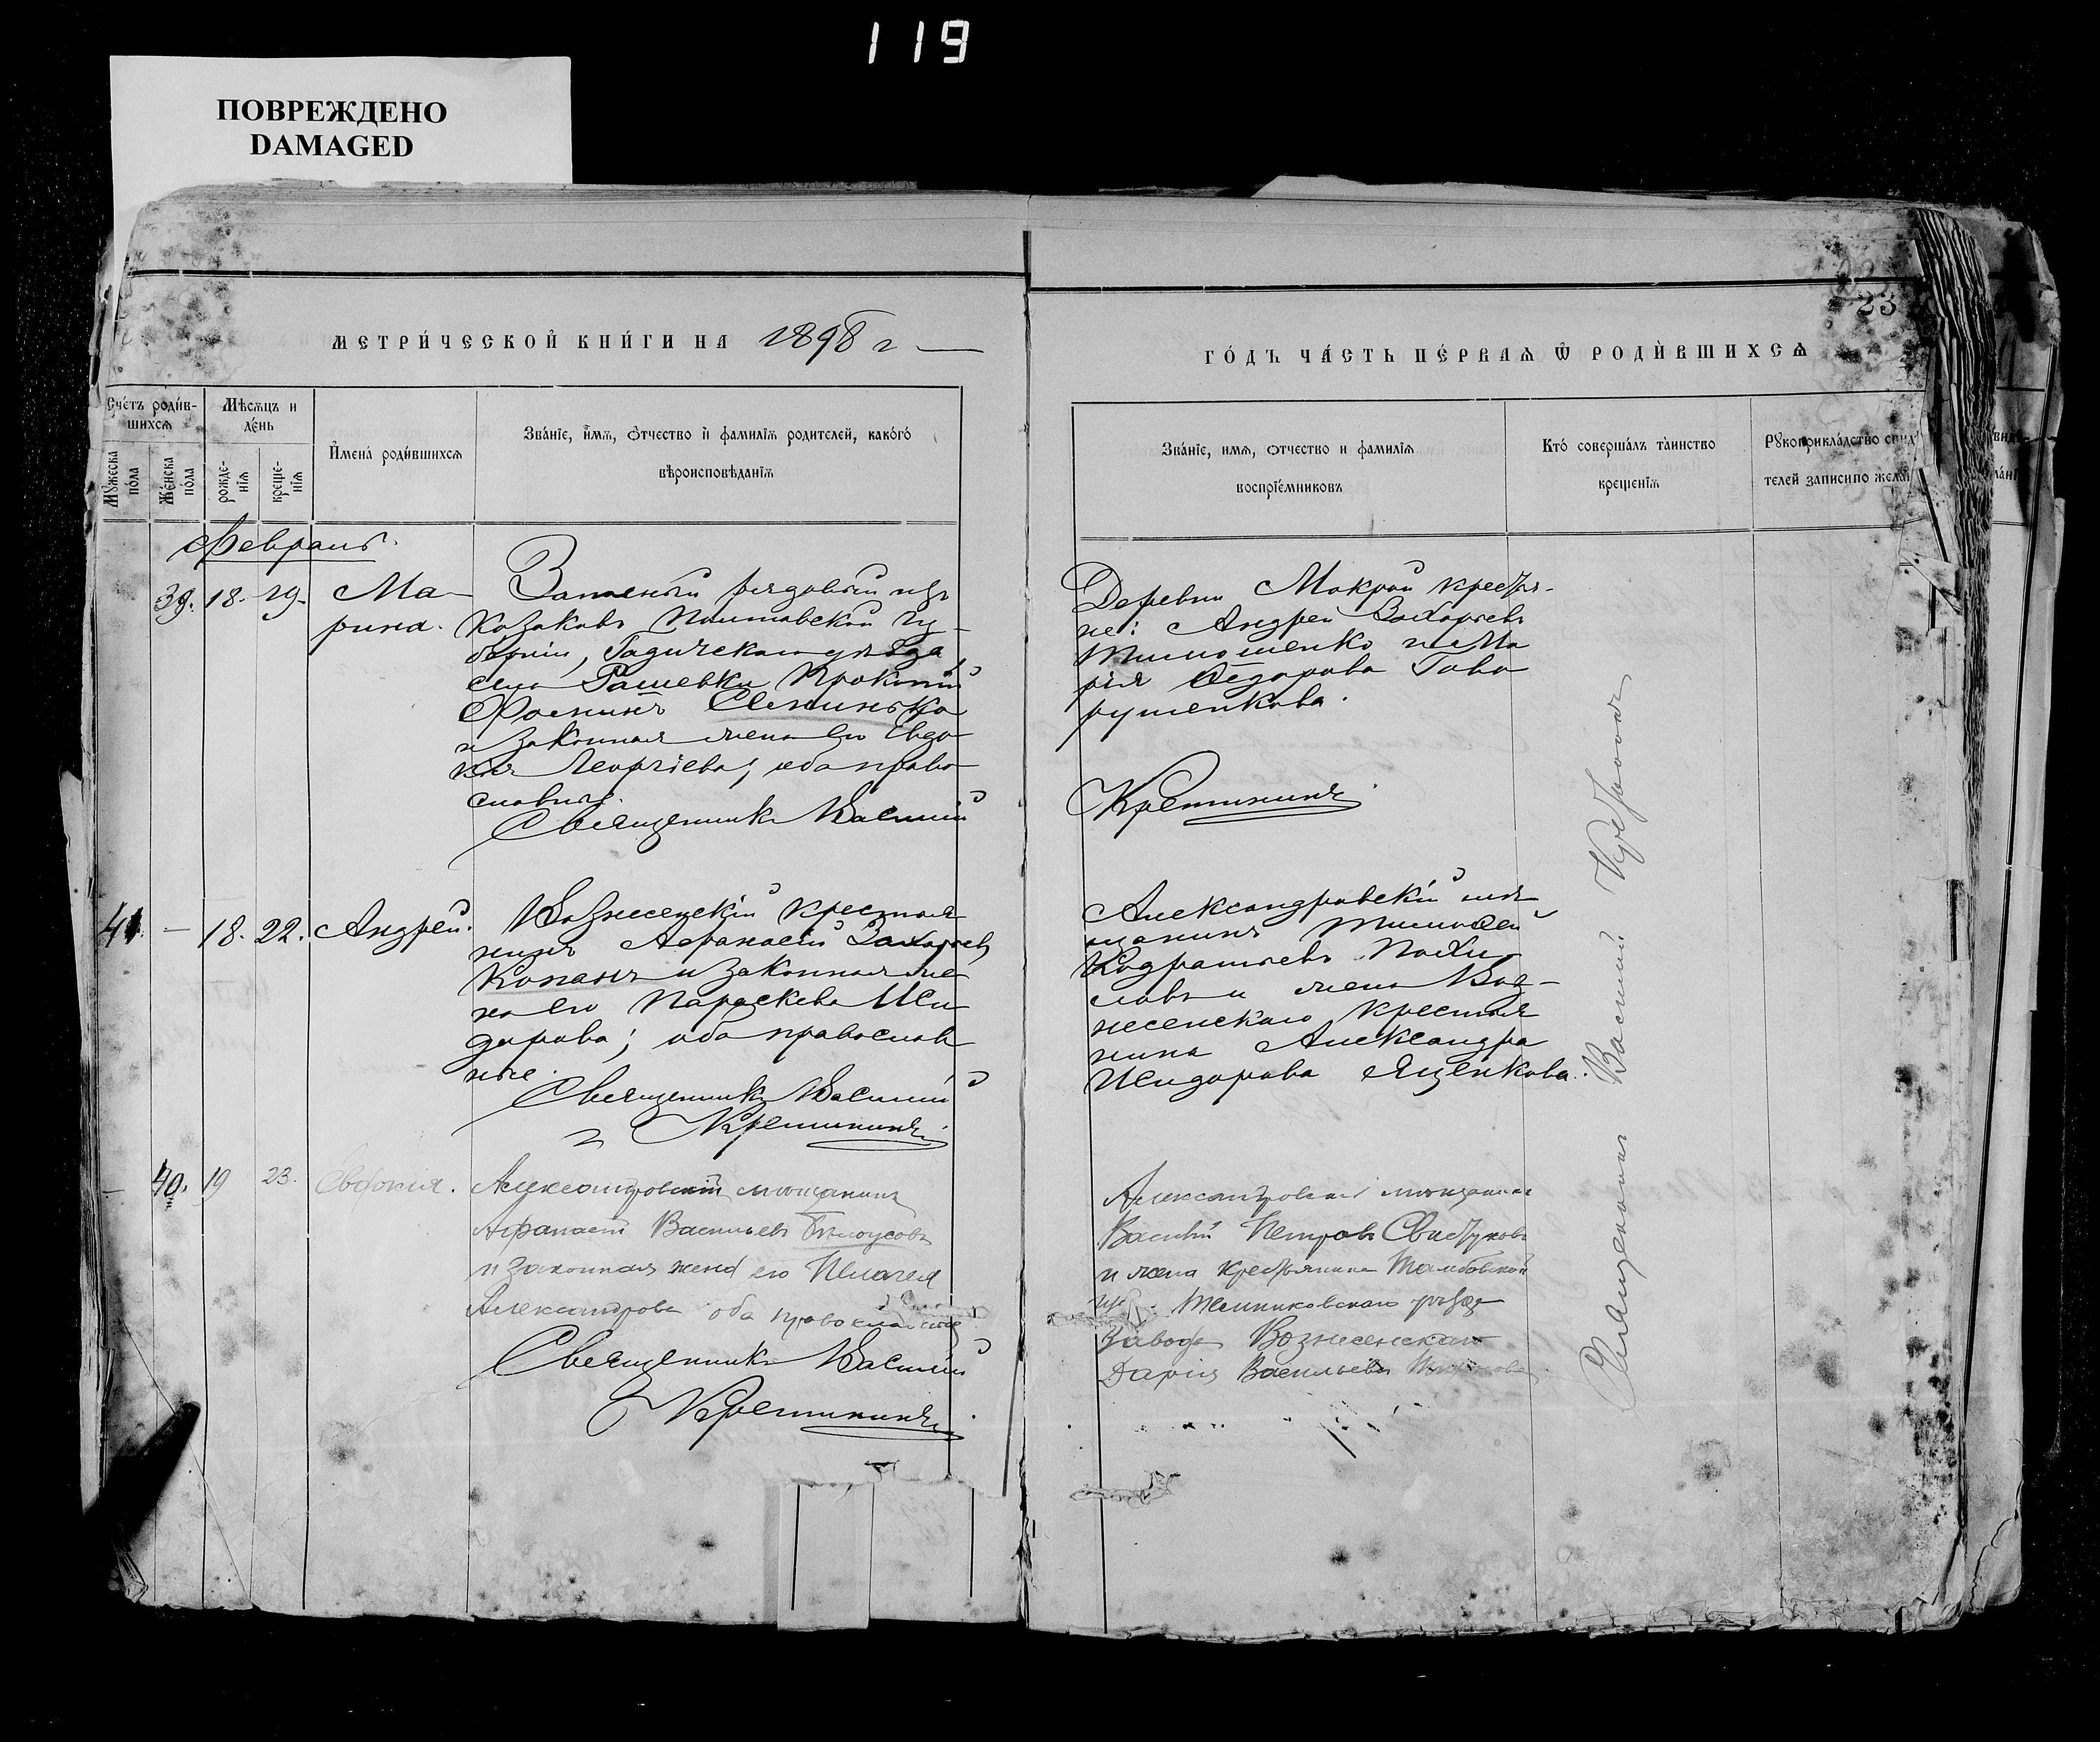 119
ПОВРЕЖДЕНО
DAMAGED
23
МЕТРИ́ЧЕСКОЙ КНИ́ГИ НА 1898 г
ГО́ДЪ ЧА́СТЬ ПЕ́РВАѦ Ѿ РОДИ́ВШИХСѦ
Сче́тъ роди́в-
шихсѧ
Мѣсѧцъ и
де́нь
Мꙋжеска
по́ла
Же́нска
по́ла
рожде-
нїѧ
креще-
нїѧ
И҆мена̀ роди́вшихсѧ
Зва́нїе, и҆́мѧ, ѻ҆́тчество и҆ фамилїѧ родителей, како́гѡ
вѣроисповѣданїѧ
Зва́нїе, имѧ, отчество и фамилїѧ
воспрїе́мниковъ
Кто́ соверша́лъ та́инство
крещенїѧ
Рꙋкоприкла́дство свид
телей записи по жела
Февраль
39. 18. 19. Ма-
рина.
Запасный рядовый изъ
козаковъ Полтавской гу-
берніи, Гадячскаго уѣзда
села Рашевки Прокопій
Ѳоминъ
и законная жена его Евдо-
кія Георгіева; оба право-
славные.
Священникъ Василій
Деревни Мокрой крестья-
не: Андрей Захарьевъ
Тимошенко и Ма
рія Ѳедорова Гово
рушенкова.
Кремининъ
41. — 18. 22. Андрей.
Вознесенскій крестья-
нинъ Аѳанасій Захарьевъ
Копанъ и законная же-
на его Параскева Иси-
дорова; оба православ
ные.
Священникъ Василій
Кремининъ
Александровскій мѣ-
щанинъ Тимоѳей
Кодратьевъ
ловъ и жена Воз-
несенскаго крестья
нина Александра
Исидорова Яценкова.
40. 19 23. Евфокия.
Александровскій мѣщанинъ
Афанасій Васильевъ Бѣлоусовъ
и законная жена его Пелагея
Александрова оба православные
Священникъ Василій
Кремининъ
Александровскій мѣщанинъ
Василій Петровъ
и жена крестьянина Тамбовской
губ. Темниковскаго уѣзда
завода Вознесенскаго
Дарія Васильева
Священникъ Василій